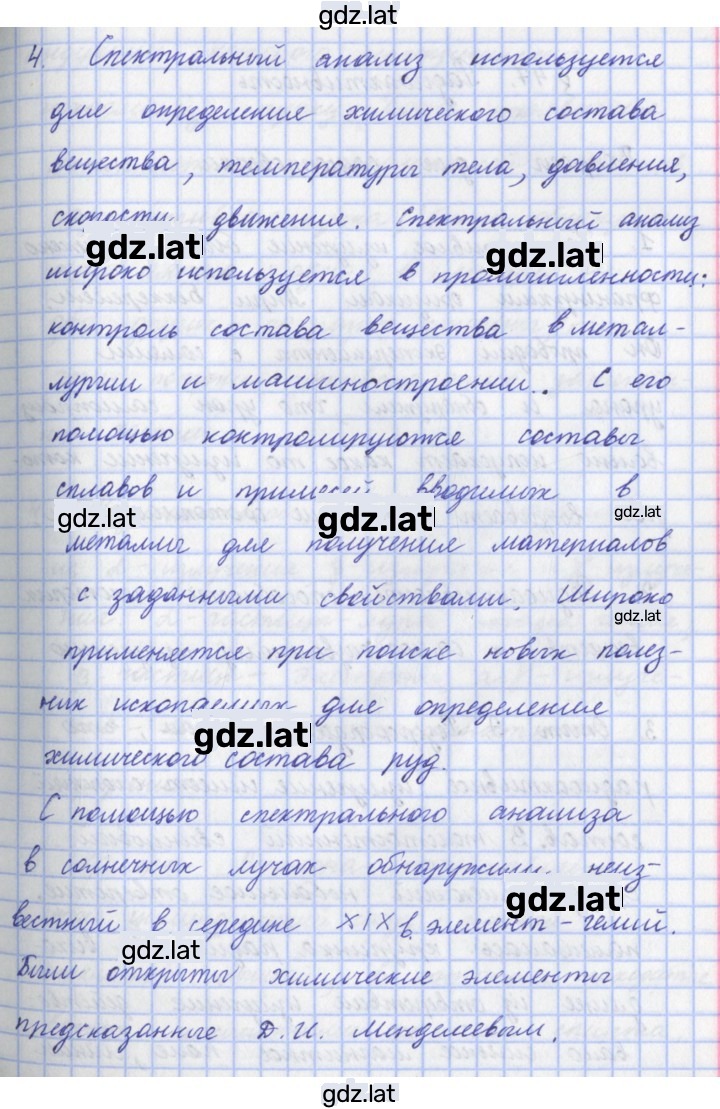 gdz.lat
4. Спектральный анализ используется
для определения химического состава
вещества, температуры тела, давления,
скорости движения. Спектральный анализ
gdz.lat gdz.lat
широко используется в промышленности:
контроль состава вещества в метал-
лургии и машиностроении. С его
помощью контролируются составы
сплавов и примесей вводимых в
gdz.lat gdz.lat gdz.lat
металлы для получения материалов
с заданными свойствами. Широко
gdz.lat
применяется при поиске новых полез-
ных ископаемых для определения
gdz.lat
химического состава руд.
С помощью спектрального анализа
в солнечных лучах обнаружили неиз-
gdz.lat
вестный в середине XIX в. элемент - гелий.
gdz.lat
Были открыты химические элементы
предсказанные Д.И. Менделеевым.
gdz.lat